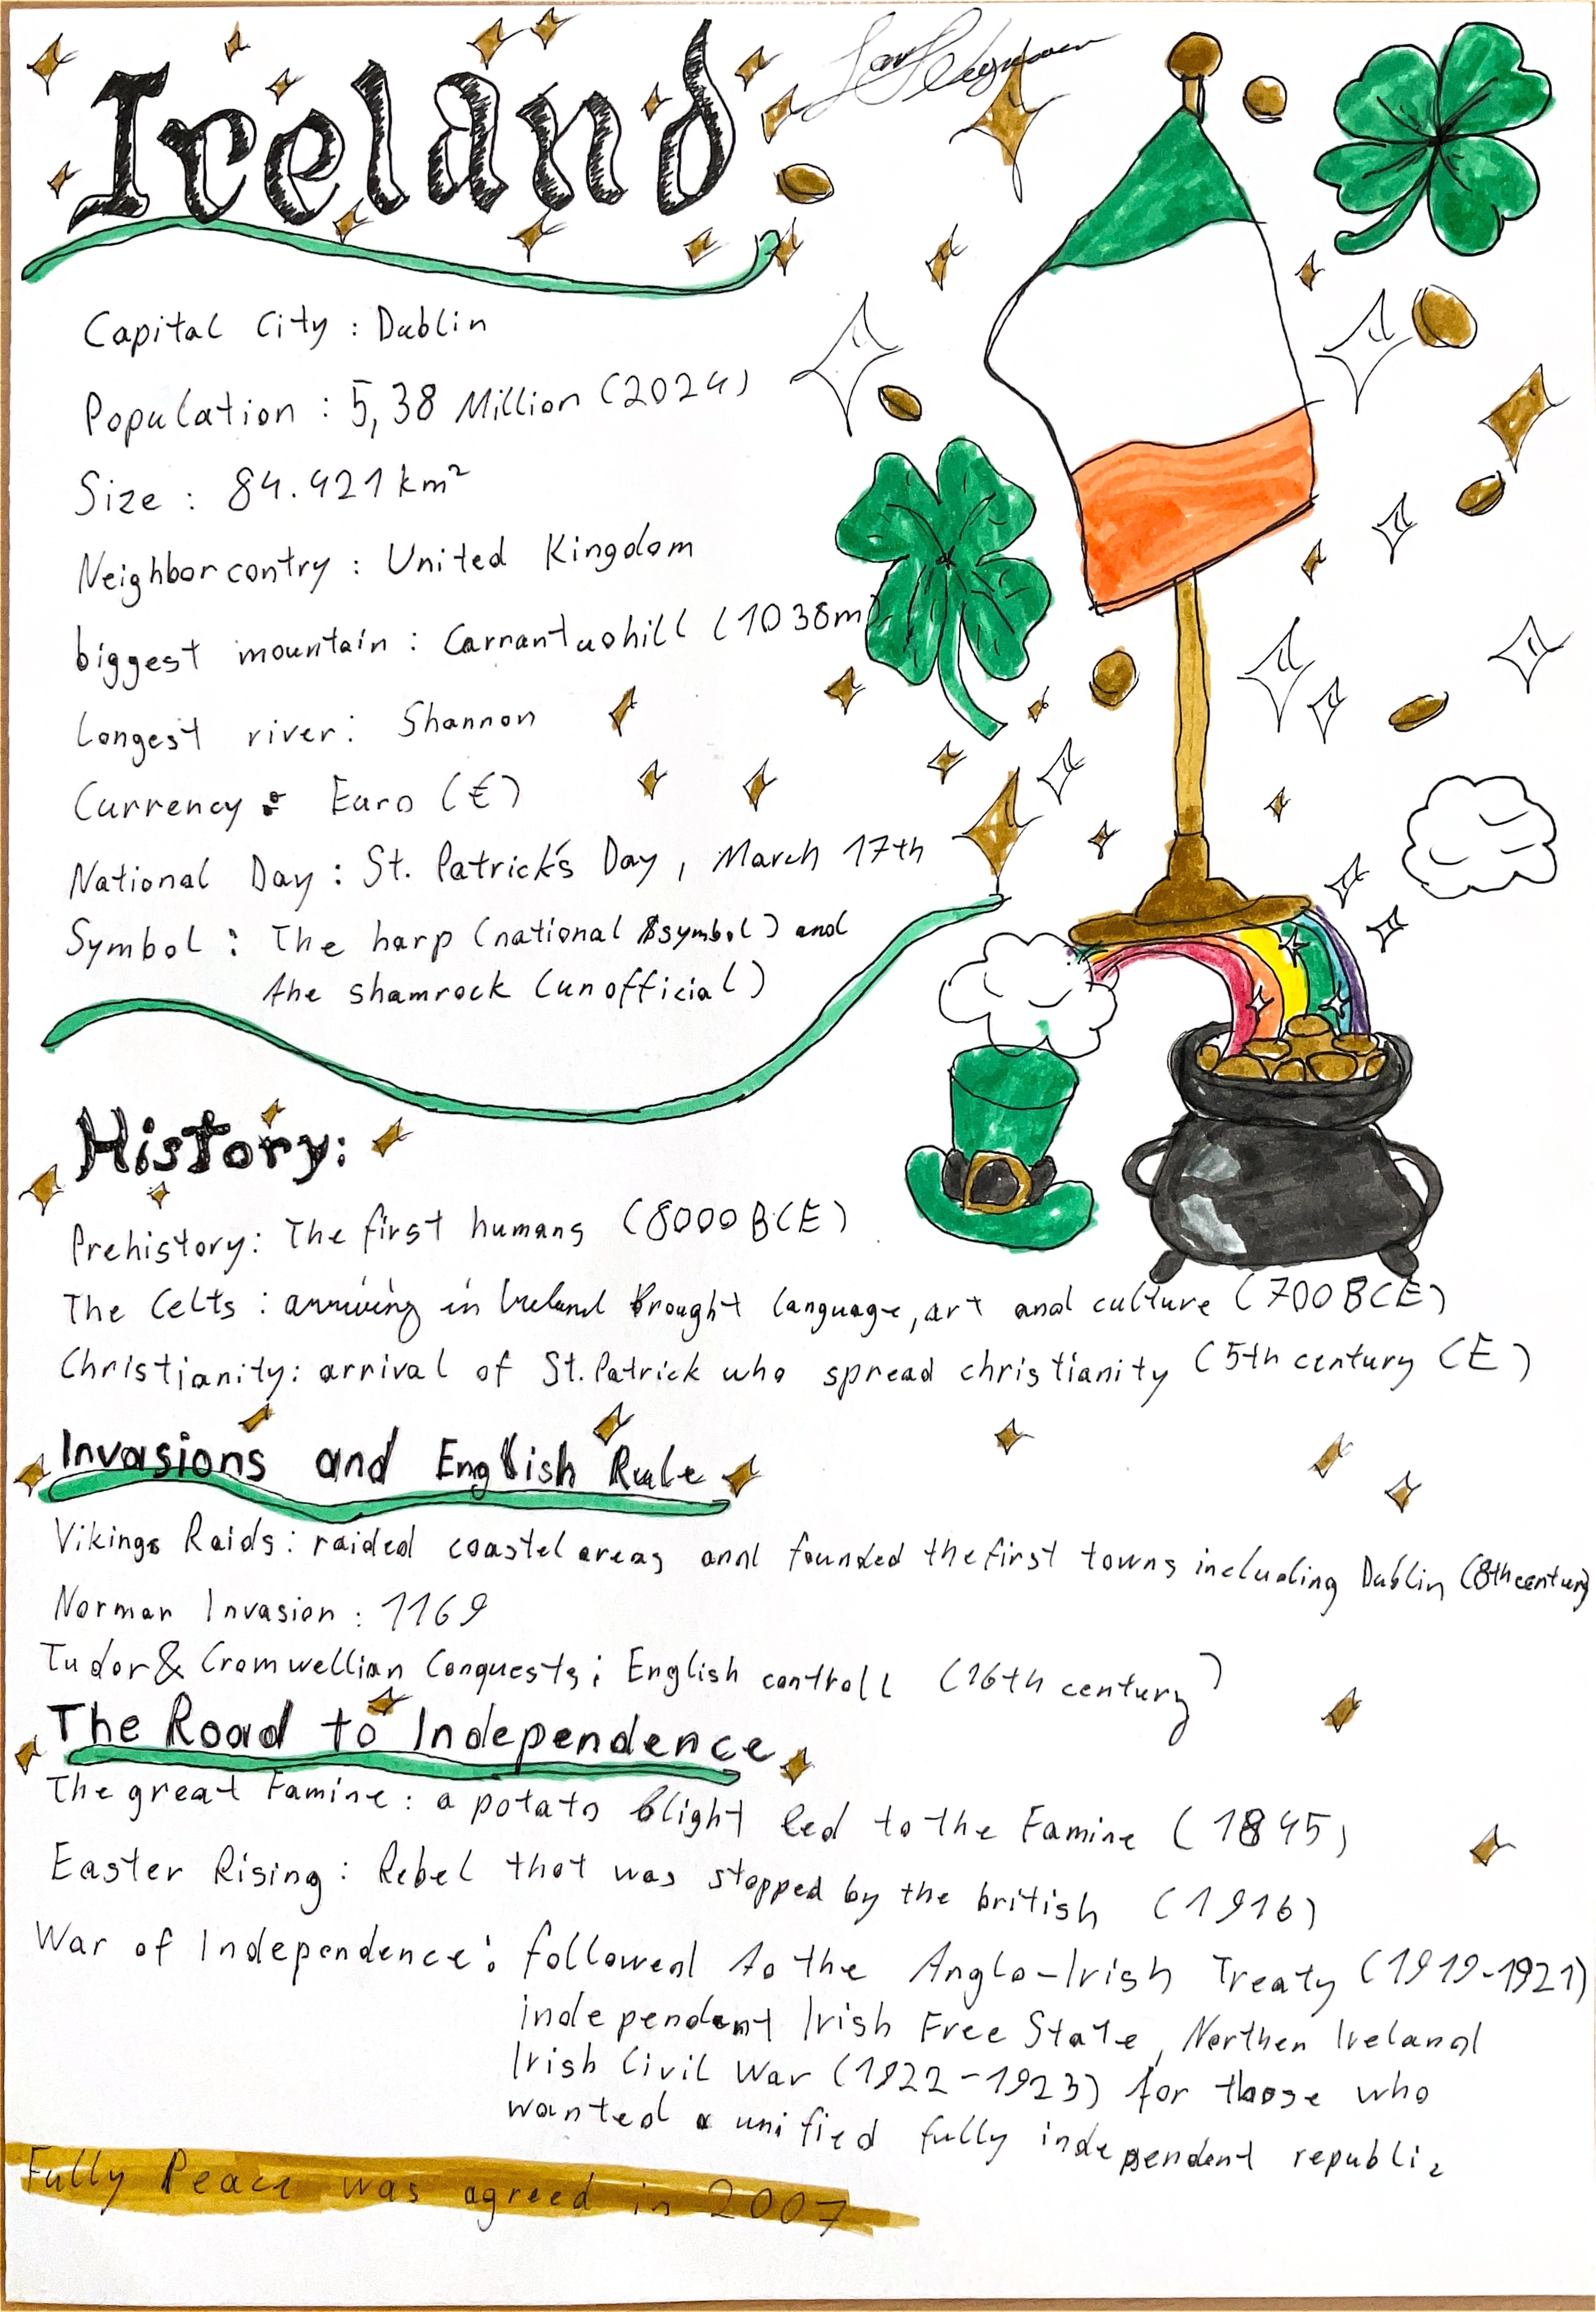 Ireland
Capital City : Dublin
Population : 5,38 Million (2024)
Size : 84.421 km²
Neighbor contry : United Kingdom
biggest mountain : Carrantuohill (1038m)
Longest river: Shannon
Currency : Euro (€)
National Day : St. Patrick's Day, March 17th
Symbol : The harp (national symbol) and
the shamrock (unofficial)
History:
Prehistory: The first humans (8000 BCE)
The Celts : arriving in Ireland brought language, art and culture (700 BCE)
Christianity: arrival of St. Patrick who spread christianity (5th century CE)
Invasions and English Rule
Vikings Raids: raided coastel areas and founded the first towns including Dublin (8th century)
Norman Invasion : 1169
Tudor & Cromwellian Conquests; English controll (16th century)
The Road to Independence
The great Famine : a potato blight led to the Famine (1845)
Easter Rising : Rebel that was stopped by the british (1916)
War of Independence : followed to the Anglo-Irish Treaty (1919-1921)
independent Irish Free State, Northen Ireland
Irish Civil War (1922-1923) for those who
wanted a unified fully independent republic
Fully Peace was agreed in 2007